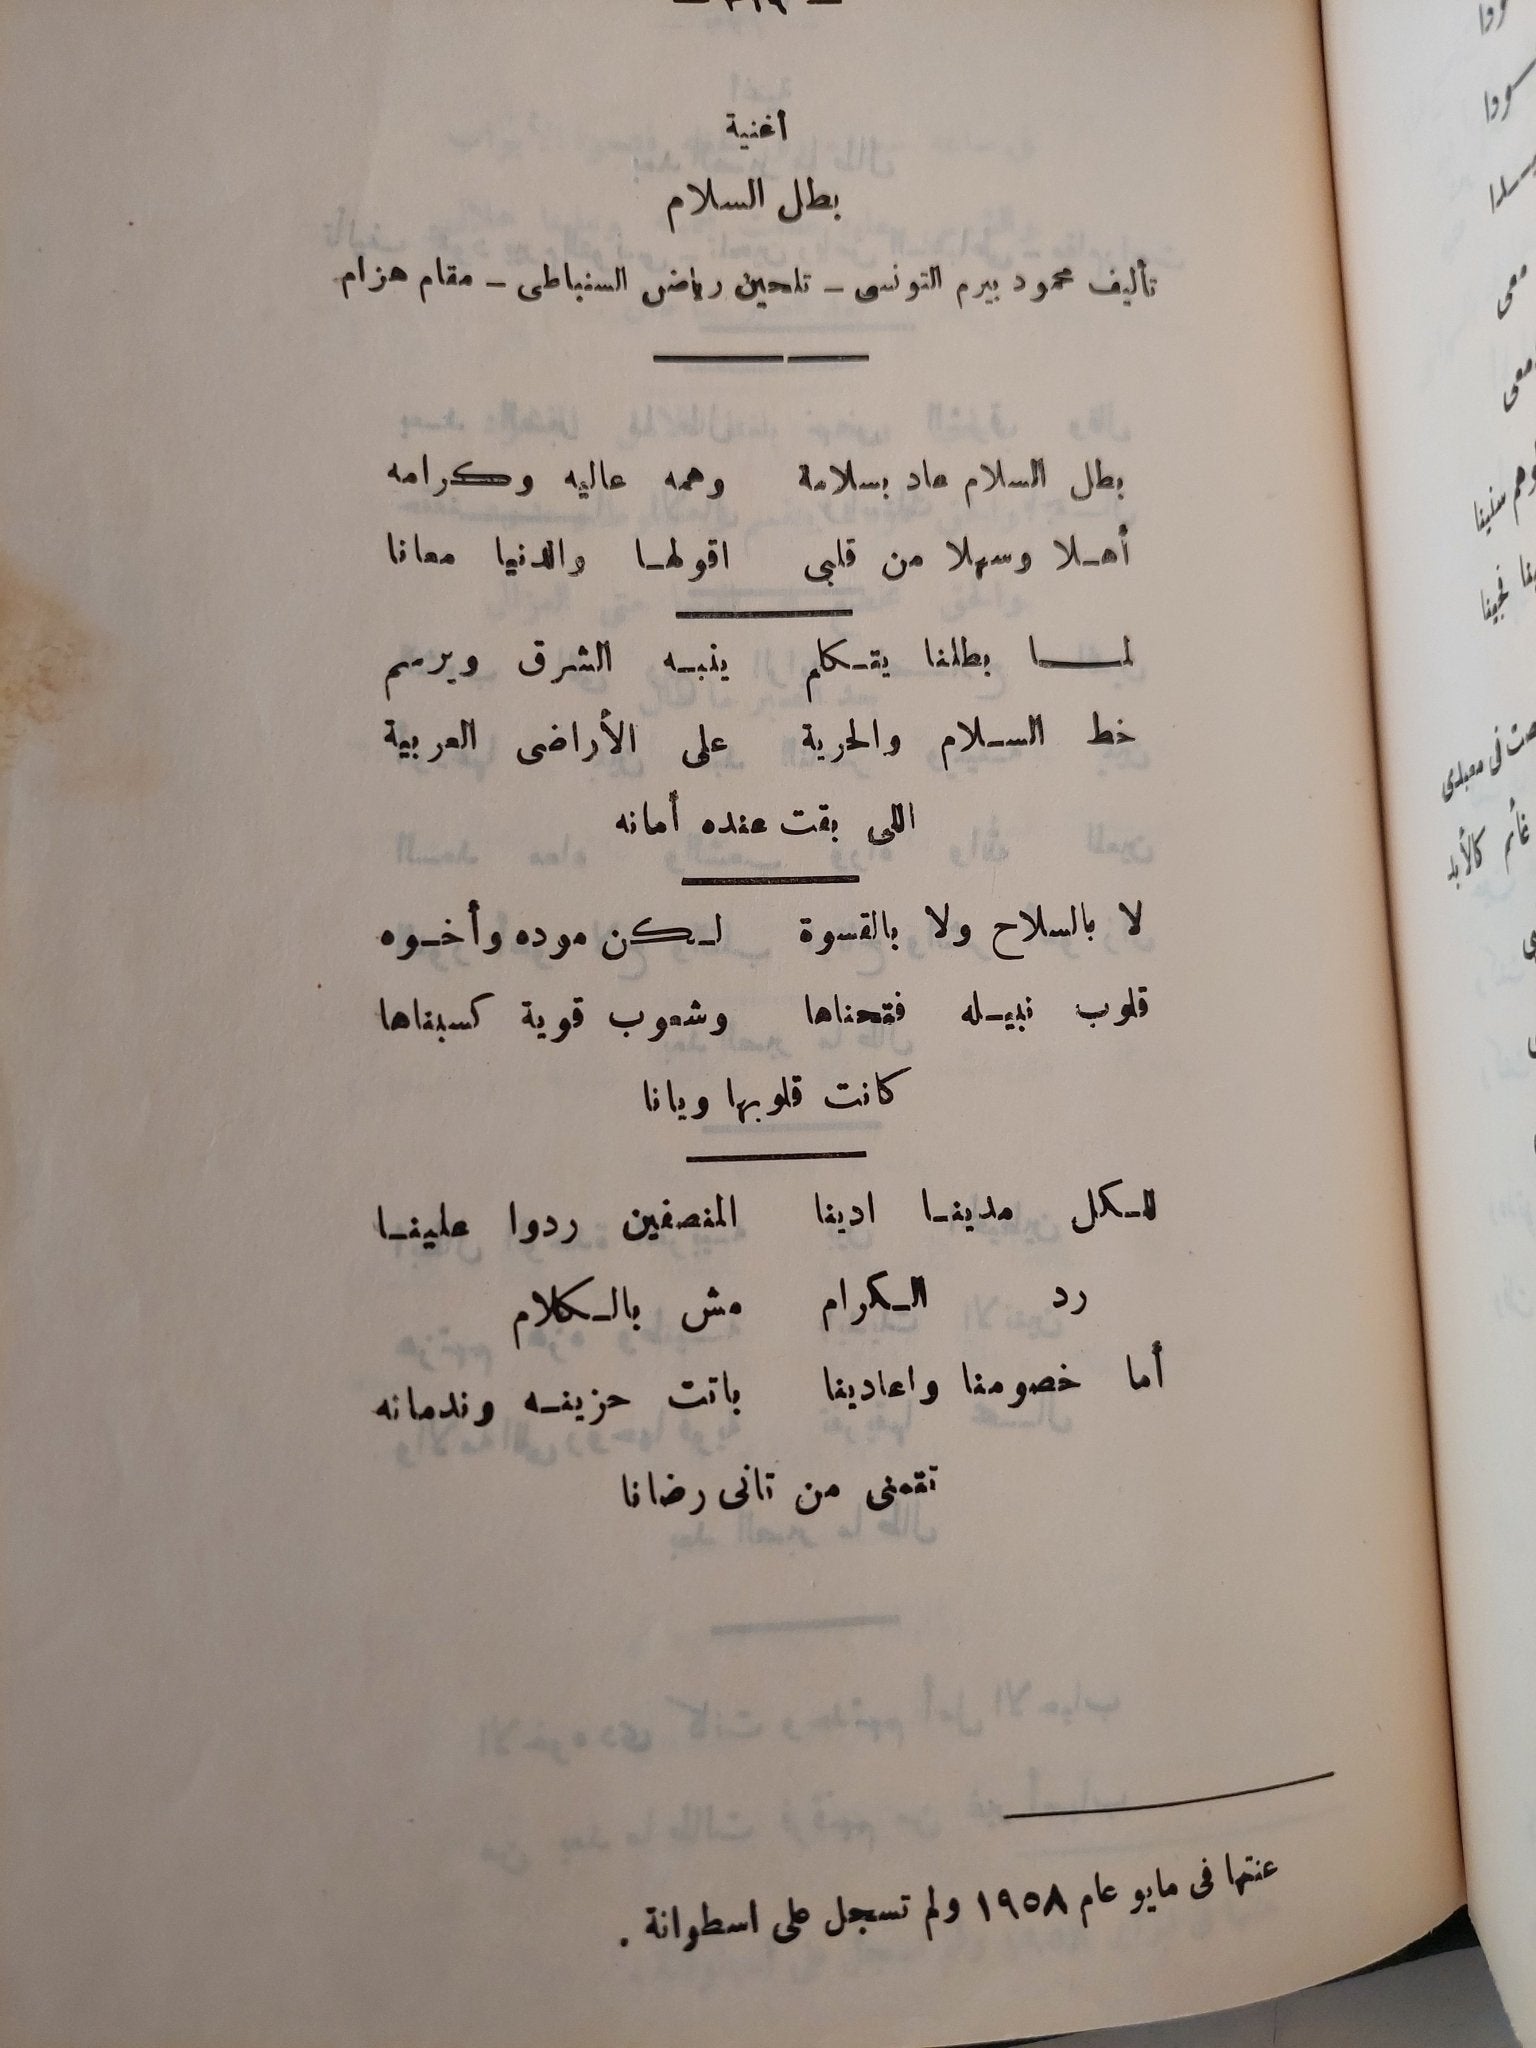 أغنية
بطل السلام
تأليف محمود بيرم التونسى – تلحين رياض السنباطى – مقام هزام
بطل السلام عاد بسلامة وهمه عاليه وكرامه
أهلا وسهلا من قلبى اقولها والدنيا معانا
لما بطلنا يتكلم ينبه الشرق ويرسم
خط السلام والحرية على الأراضى العربية
اللى بقت عنده أمانه
لا بالسلاح ولا بالقسوة لكن موده وأخوه
قلوب نبيله فتحناها وشعوب قوية كسبناها
كانت قلوبها ويانا
لكل مدينا ادينا المنصفين ردوا علينا
رد الكرام مش بالكلام
أما خصومنا واعادينا باتت حزينه وندمانه
تتمنى من تانى رضانا
غنتها فى مايو عام ١٩٥٨ ولم تسجل على اسطوانة .
سودا
معى
سنينا
معبدى
غأم كالأبد